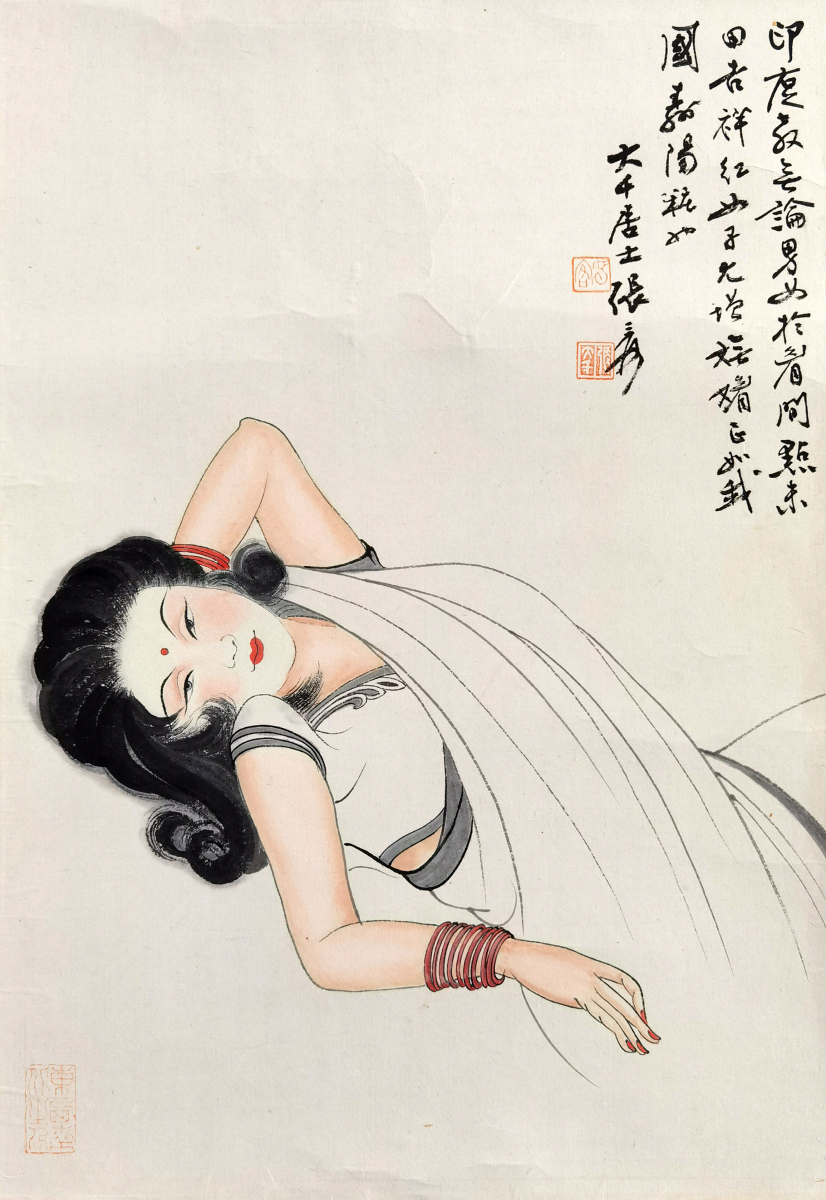 印度教無論男女於眉間點朱
曰吉祥紅女子尤增嫵媚正如我
國壽陽粧也
大千居士張爰